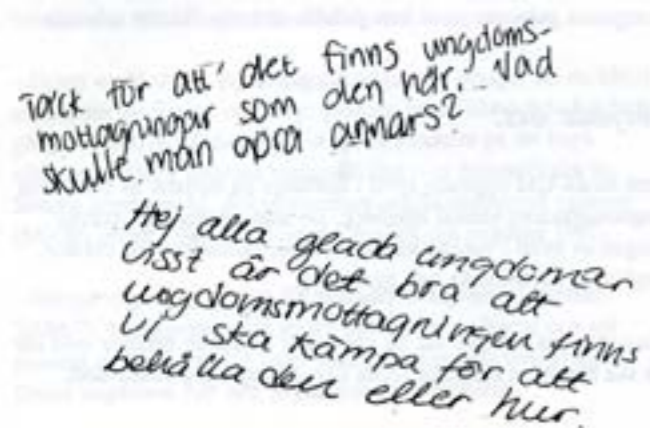 Tack för att det finns ungdoms-
mottagningar som den här. Vad
skulle man göra annars?
Hej alla glada ungdomar
visst är det bra att
ungdomsmottagningen finns
vi ska kämpa för att
behålla den eller hur.